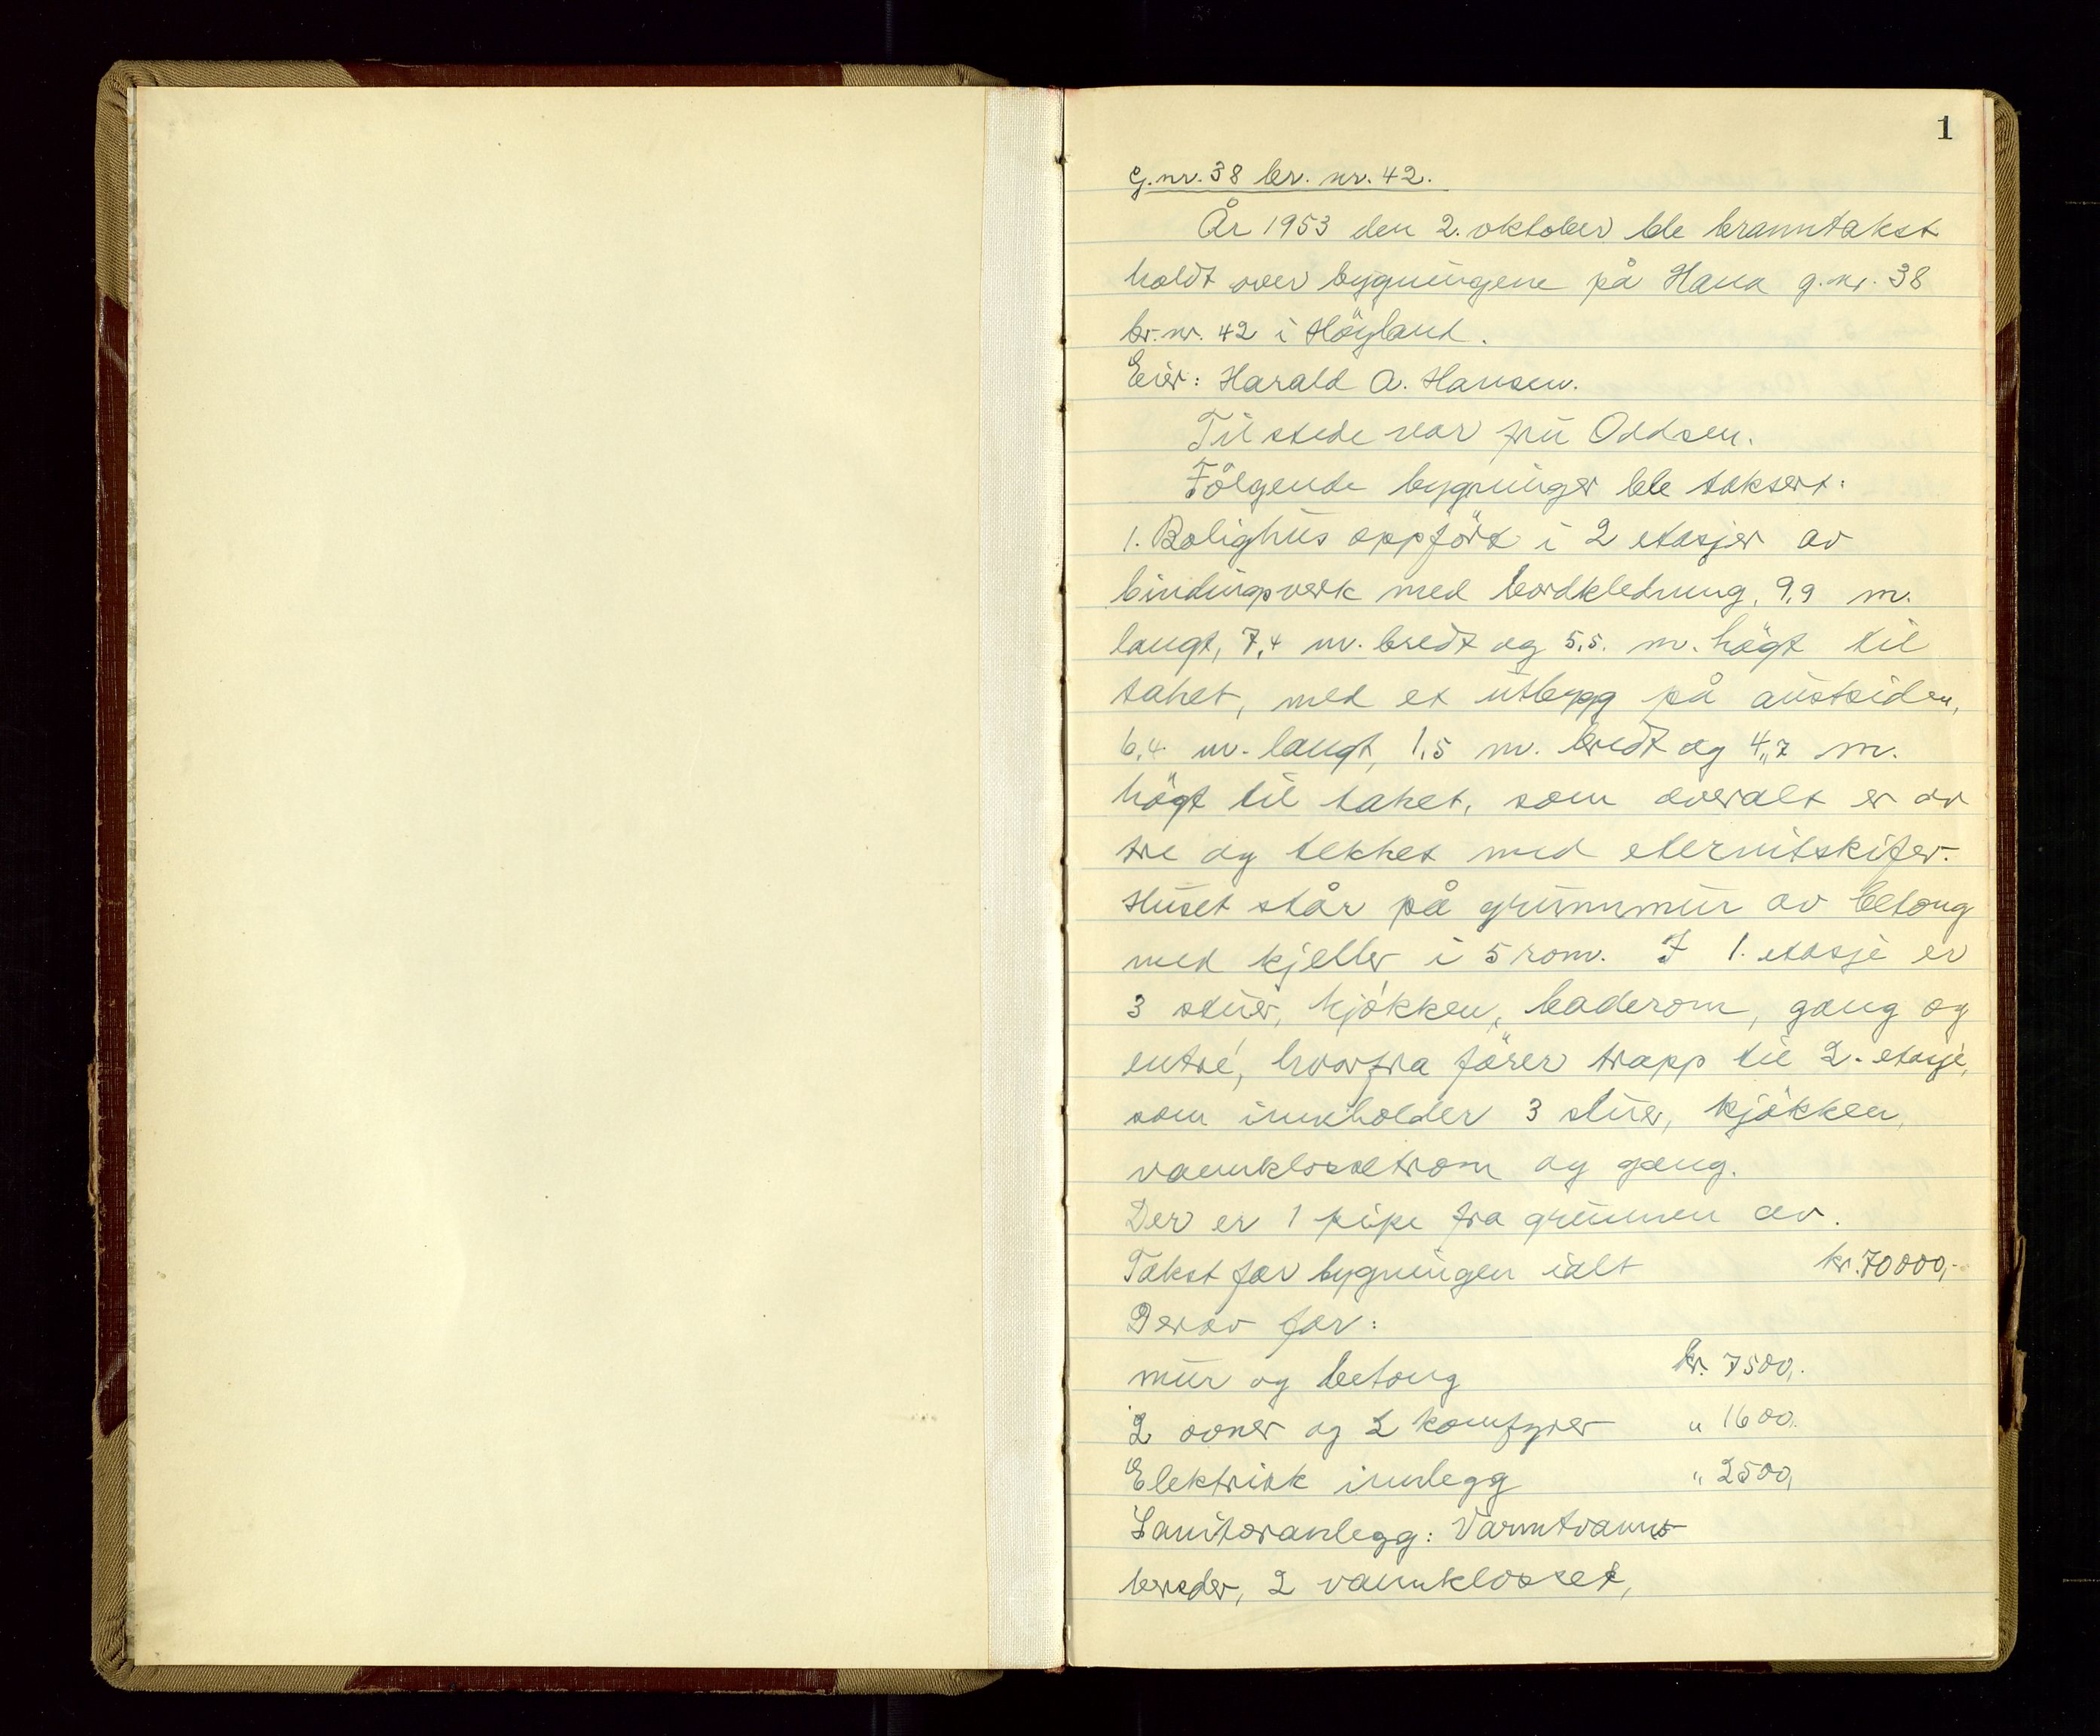 1
G.nr. 38 br. nr. 42.
År 1953 den 2. oktober ble branntakst
holdt over bygningene på Hana g.nr. 38
br.nr. 42 i Höyland.
Eier: Harald A. Hansen.
Til stede var fru Oddsen.
Fölgende bygninger ble taksert:
1. Bolighus oppfört i 2 etasjer av
bindingsverk med bordkledning, 9,9 m.
langt, 7,4 m. bredt og 5,5. m. högt til
taket, med et utbygg på austsiden,
6,4 m. langt, 1,5 m. bredt og 4,7 m.
högt til taket, som overalt er av
tre og tekket med eternitskifer.
Huset står på grunnmur av betong
med kjeller i 5 rom. I 1. etasje er
3 stuer, kjökken, baderom, gang og
entré, hvorfra förer trapp til 2. etasje,
som inneholder 3 stuer, kjökken,
vannklosetrom og gang.
Der er 1 pipe fra grunnen av.
Takst for bygningen ialt kr. 70000,-
Derav for:
mur og betong kr. 7500,-
2 ovner og 2 komfyrer " 1600,-
Elektrisk innlegg " 2500,
Sanitæranlegg: Varmtvanns-
bereder, 2 vannklosset,